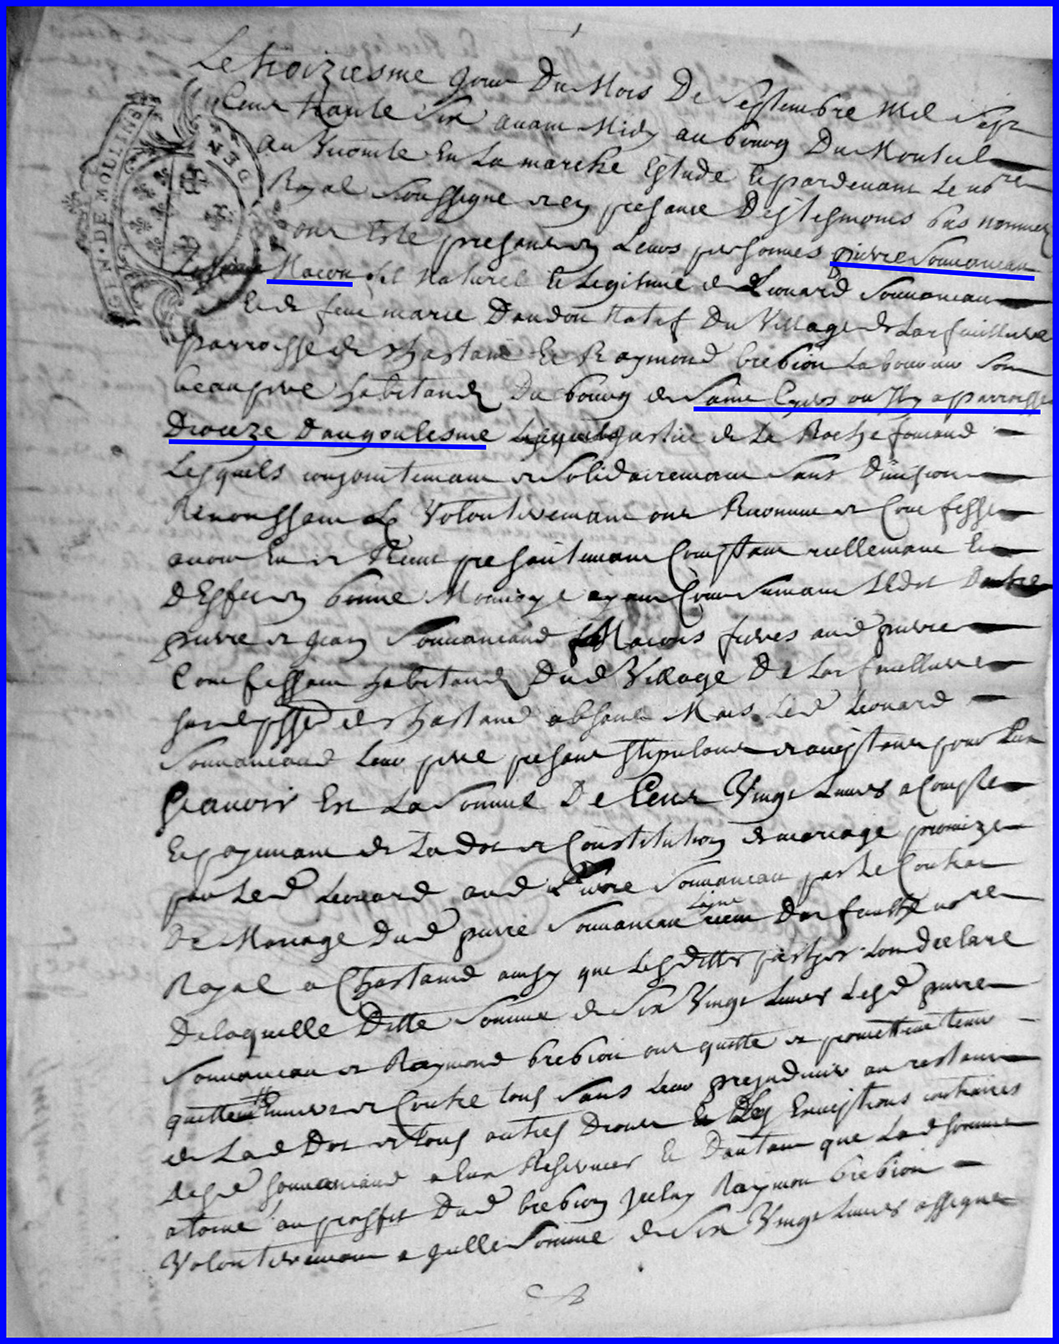 GEN · DE MOULINS
Le troiziesme jour Du Mois De Septembre Mil Sept
Cent trante Six avant Midy au bourg Du Monteil
au Vicomte En La marche Estude Et pardevant Le nore
Royal Soussigne et en presance Des tesmoins bas nommes
ont Este presant en Leurs personnes pierre Sounaneau
Macon fil Naturel Et Legitime de Leonard Sounaneau
Et de feue marie Daudon Natif Du Village de Larfeuillere
parroisse de Chastaind Et Raymond brebion Laboureur Son
beaupere habitand Du bourg de Saint Cyers parroisse
Dioceze Dangoulesme justice de La Rochefoucaud
Lesquels conjointemant et Solidairemant Sans Division
Renonssant Volontairemant ont Reconnu et Confesse
avoir Eu et Receu presantemant Comptant reellemant Et
D'Esfet en bonne Monnoye ayant Cour Suivant LEdit
pierre et jean Sounaneaud Macons freres aud pierre
Confessant habitand Dud Village De Larfeuillere
parroisse de Chastaind absant Mais Led Leonard
Sounaneaud Leur pere presant Stipulant et acceptant pour Eux
Scavoir Est La Somme De Cent Vingt Livres a Compte
Et payemant de La Dot et Constitution de mariage promize
par Led Leonard aud pierre Sounaneau par Le Contrat
De Mariage Dud pierre Sounaneau receu nore
Royal a Chastaind ainsy que Lesdittes parties Lont declare
De laquelle Ditte Somme de Six Vingt Livres Lesd pierre
Sounaneau et Raymond brebion ont quitte et promettent tenir
quitte Envers et Contre tous Sans Leur prejudicier au restant
de Lad Dot et tous autres Droits Et Exceptions contraires
Sounaneaud a Luy Reserves Et Dautant que Lad Somme
a tourné au proffit Dud brebion Iceluy Raymon brebion
Volontairemant a Somme de Six Vingt Livres assigne